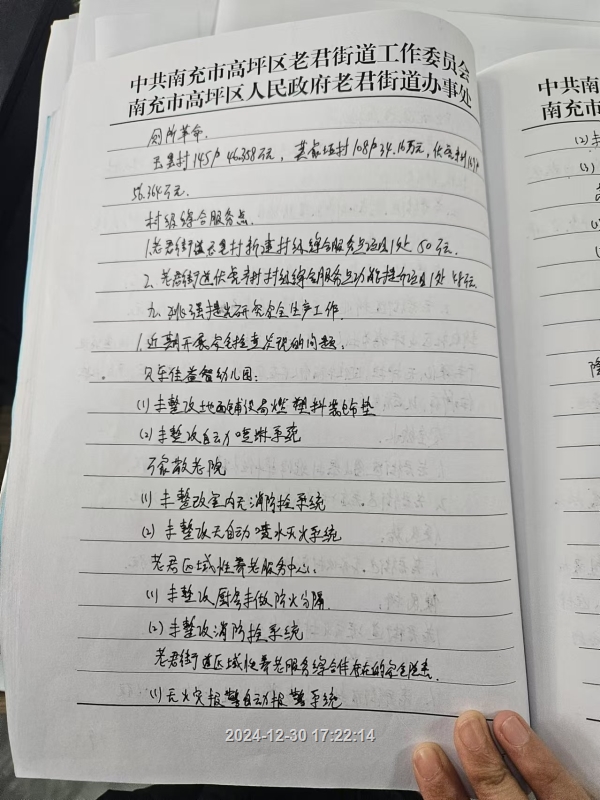 中共南充市高坪区老君街道工作委员会
南充市高坪区人民政府老君街道办事处
厕所革命.
村145户 46.358万元, 村108户 34.16万元,
56.364万元.
村级综合服务点.
1.老君街道 村新建村级综合服务点项目1处 50万元.
2.老君街道伏 村村级综合服务点功能提升项目1处 万元.
九、 强 研究安全生产工作.
1.近期开展安全检查发现的问题.
贝乐佳益智幼儿园:
(1)未整改地面铺设易燃塑料装饰垫
(2)未整改自动喷淋系统
万家敬老院
(1)未整改室内无消防拴系统
(2)未整改无自动喷水灭火系统
老君区域性养老服务中心.
(1)未整改厨房未做防火分隔.
(2)未整改消防拴系统
老君街道区域性养老服务综合体存在的安全隐患.
(1)无火灾报警自动报警系统
中共南
南充市
(2)未
(3)
2024-12-30 17:22:14